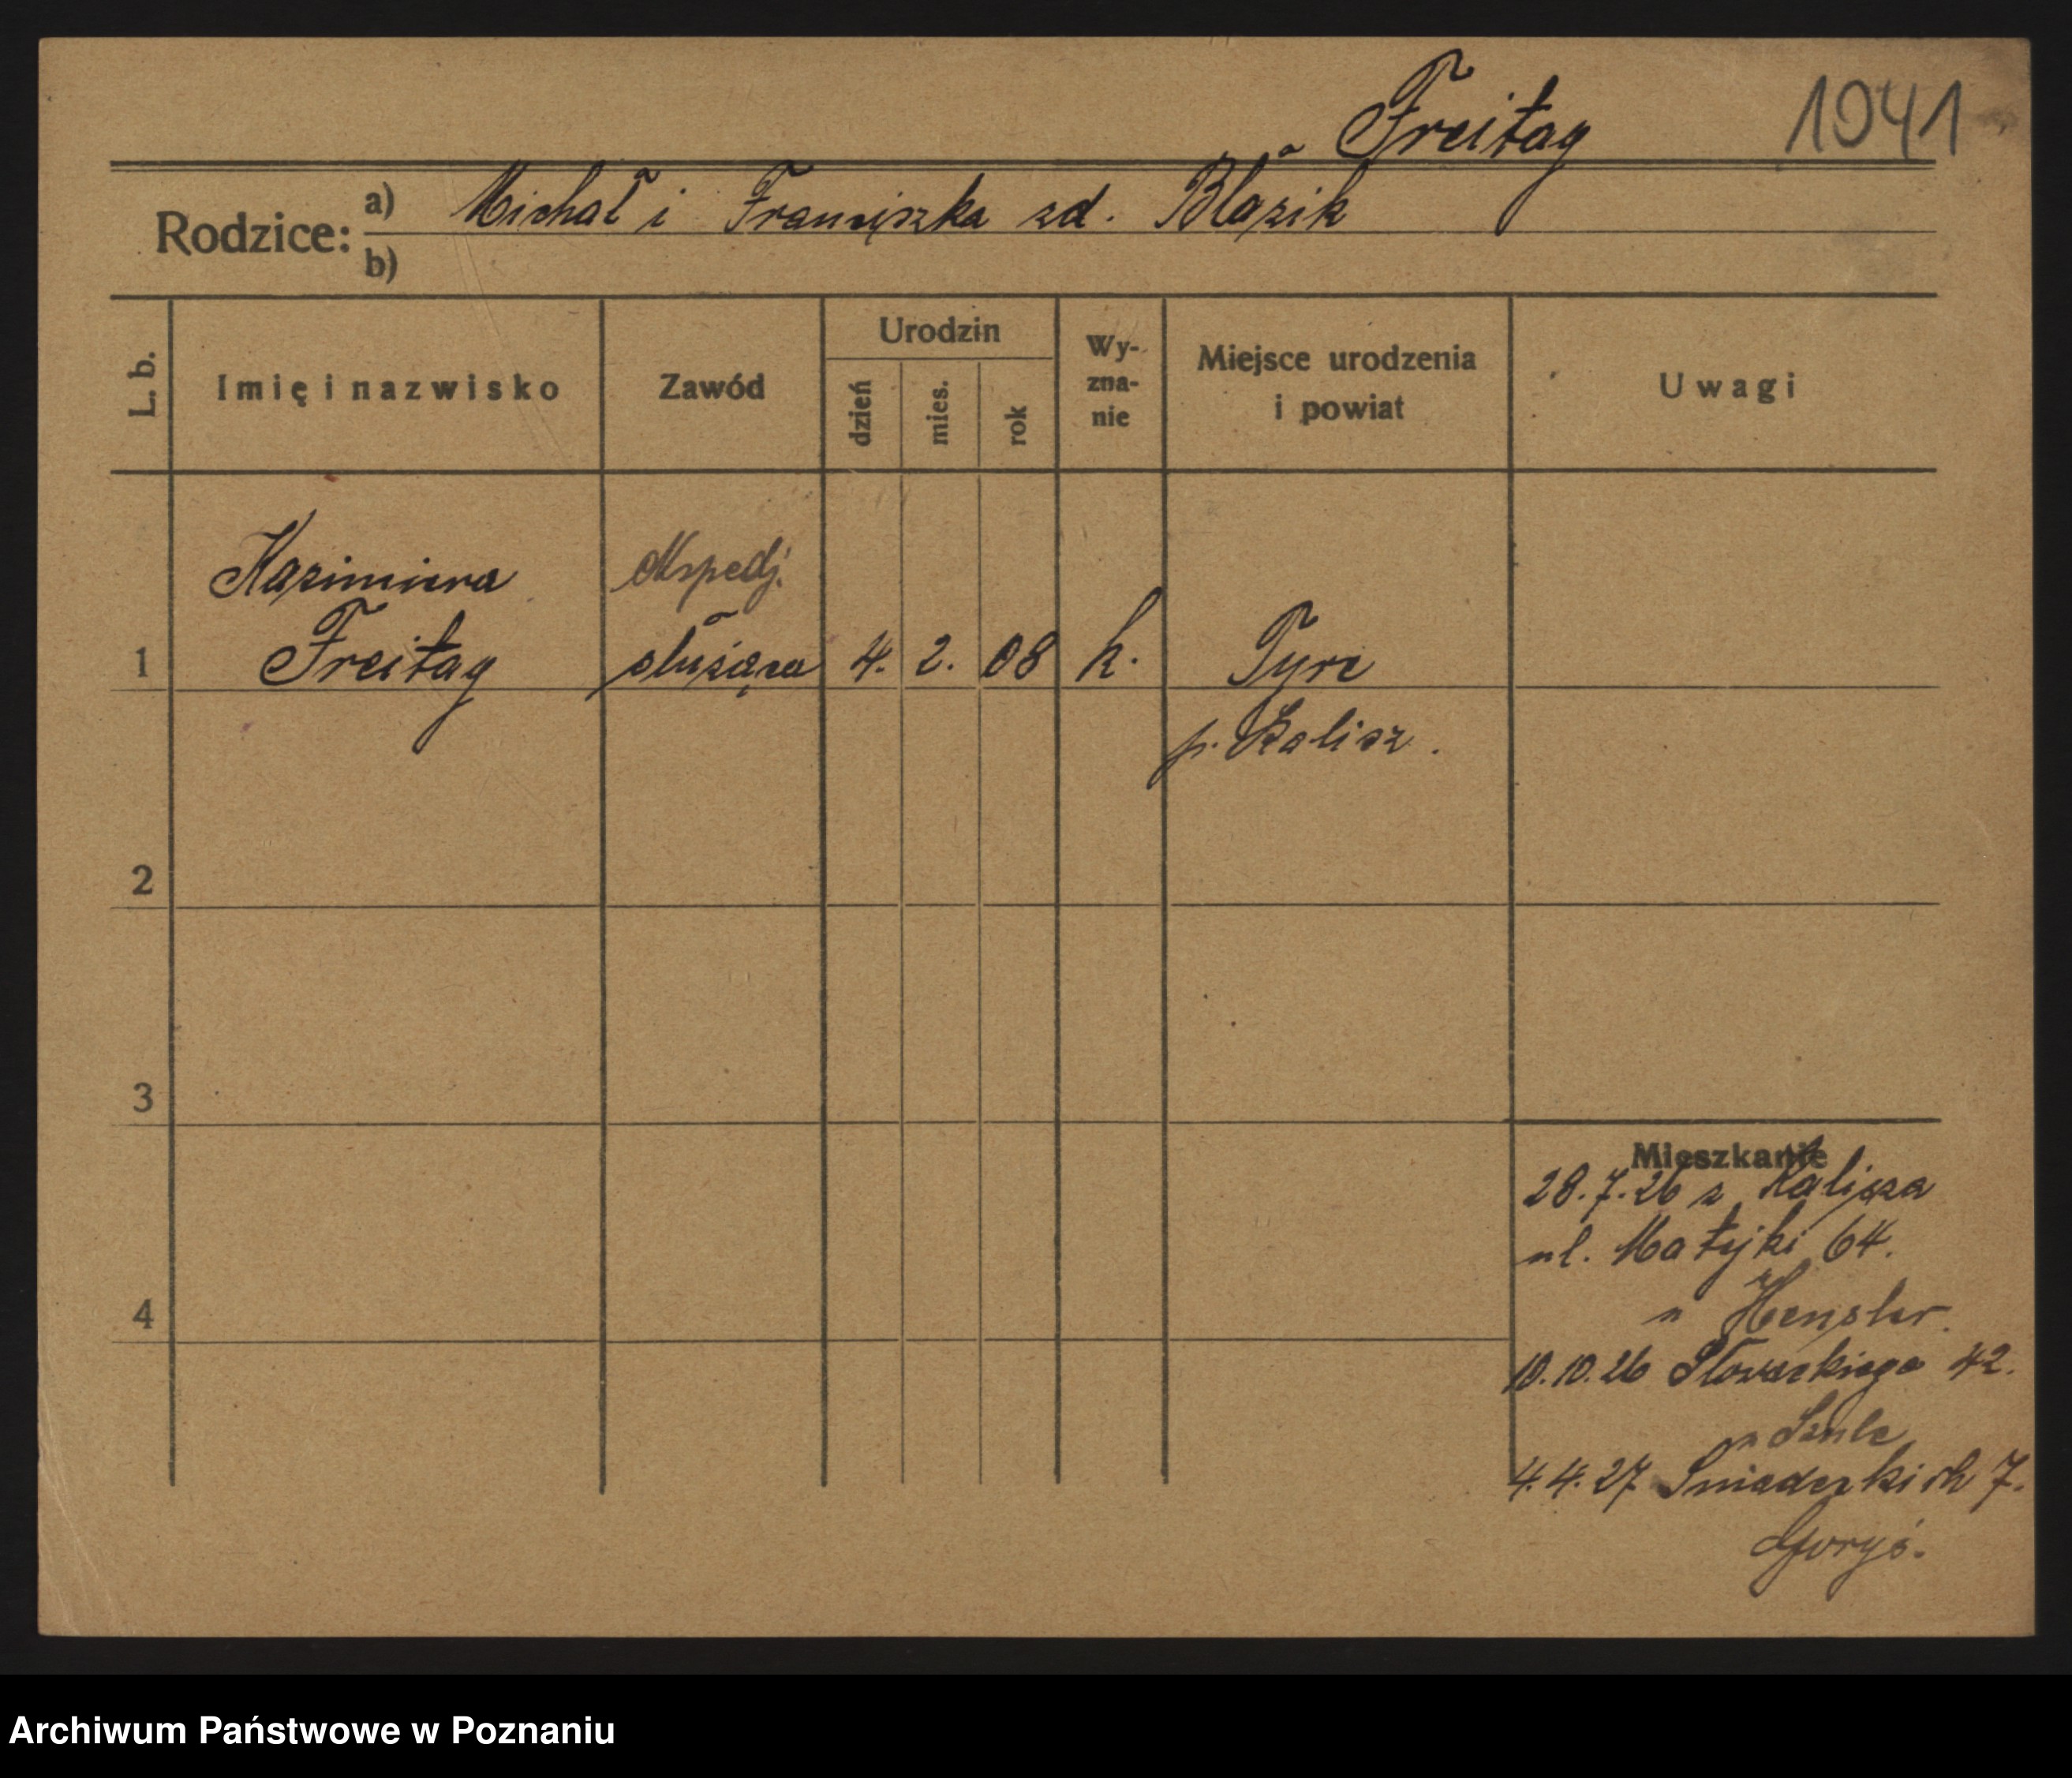 Freitag
1041
Rodzice:
a) Michał i Franciszka zd. Błazik
b)
L. b.
Imię i nazwisko
Zawód
Urodzin
dzień
mies.
rok
Wy-
zna-
nie
Miejsce urodzenia
i powiat
Uwagi
Kazimiera
Freitag
ekspedj.
służąca
1
4. 2. 08
k.
Tyrc
p. Kalisz.
2
3
4
Mieszkanie
28.7.26 z Kalisza
ul. Matejki 64.
u Hensler.
10.10.26 Słowackiego 42.
u Szulc
4.4.27 Śniadeckich 7.
Goryś.
Archiwum Państwowe w Poznaniu